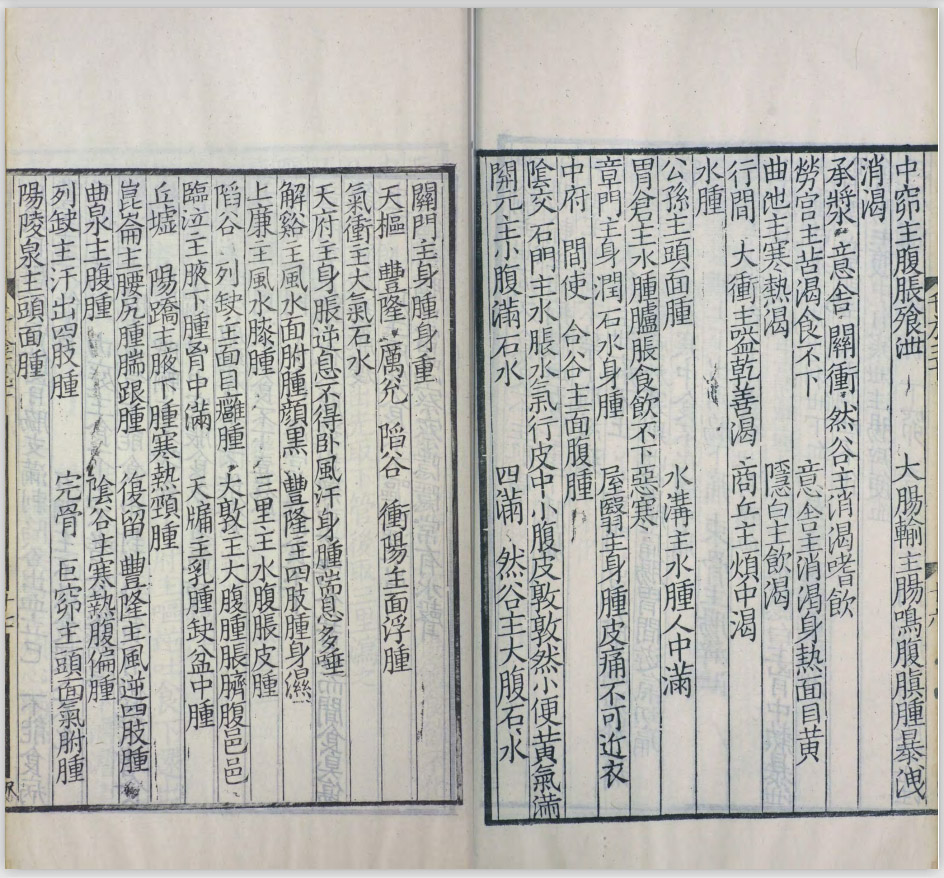 中窌主腹脹飱泄　大腸輸主腸鳴腹䐜腫暴洩
消渴
承漿　意舍　關衝　然谷主消渴嗜飲
勞宮主苦渴食不下　意舍主消渴身熱面目黃
曲池主寒熱渴　隱白主飲渴
行間　大衝主嗌乾善渴　商丘主煩中渴
水腫
公孫主頭面腫　水溝主水腫人中滿
胃倉主水腫臚脹食飲不下惡寒
章門主身潤石水身腫　屋翳主身腫皮痛不可近衣
中府　間使　合谷主面腹腫
陰交石門主水脹水氣行皮中小腹皮敦敦然小便黃氣滿
關元主小腹滿石水　四滿　然谷主大腹石水
關門主身腫身重
天樞　豐隆　厲兌　陷谷　衝陽主面浮腫
氣衝主大氣石水
天府主身脹逆息不得卧風汗身腫喘息多唾
解谿主風水面胕腫顔黑　豐隆主四肢腫身濕
上廉主風水膝腫　三里主水腹脹皮腫
陷谷　列缺主面目癰腫　大敦主大腹腫脹臍腹邑邑
臨泣主腋下腫胷中滿　天牖主乳腫缺盆中腫
丘墟　陽蹻主腋下腫寒熱頸腫
崑崙主腰尻腫腨跟腫　復留　豐隆主風逆四肢腫
曲泉主腹腫　陰谷主寒熱腹偏腫
列缺主汗出四肢腫　完骨　巨窌主頭面氣胕腫
陽陵泉主頭面腫